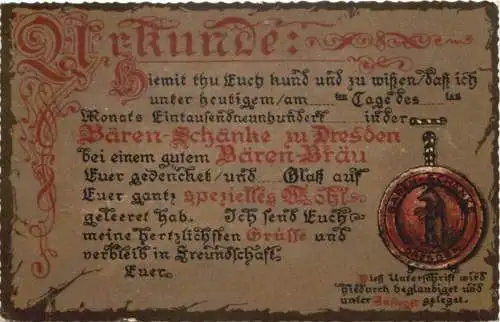 Urkunde:
Hiemit thu Euch kund und zu wißen/daß ich
unter heutigem/am ten Tage des tas
Monats Eintausendneunhundert in der
Bären-Schänke zu Dresden
bei einem gutem Bären-Bräu
Euer gedencket/und Glaß auf
Euer gantz spezielles Wohl
geleeret hab. Ich send Euch
meine hertzlichsten Grüße und
verbleib in Freundschaft
Euer
BÄREN-SCHÄNKE
DRESDEN
Dies Unterschrift wird
hiedurch beglaubiget und
unter geleget.